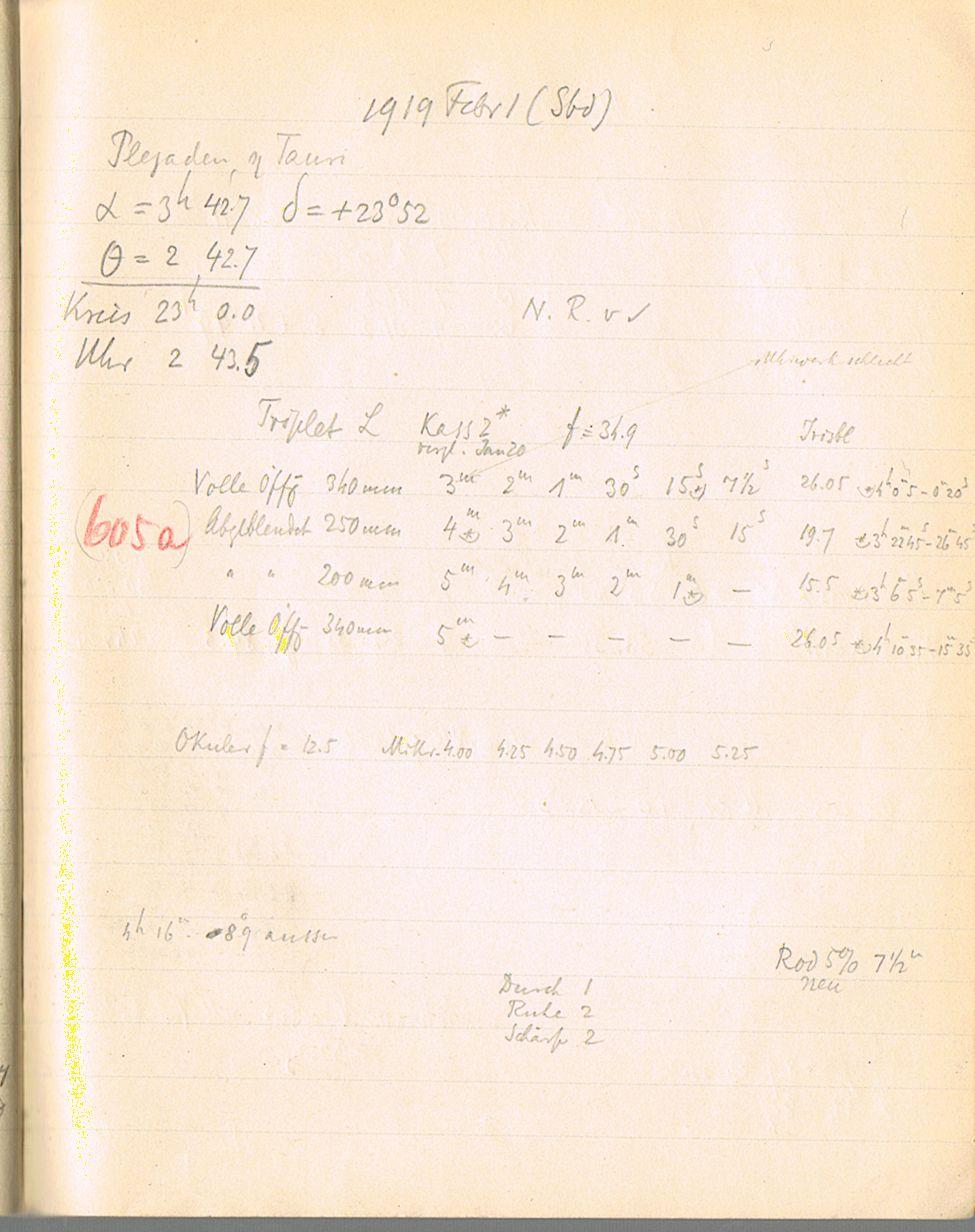 1919 Febr 1 (Sbd)
Plejaden, η Tauri
α = 3h 42.7 δ = +23°52
θ = 2 42.7
Kreis 23h 0.0
N. R. v ✓
Uhr 2 43.5
Uhrwerk schlecht
Triplet L Kass 2* f = 34.9 Irisbl
vergl. Jan 20
Volle Öffg 340mm 3m 2m 1m 30s 15s 7½s 26.05 4h 0m 5 - 0m 20s
(605a) Abgeblendet 250mm 4m 3m 2m 1m 30s 15s 19.7 3h 22m45s - 26m45
" " 200mm 5m 4m 3m 2m 1m — 15.5 3h 6m 5s - 7m 5s
Volle Öffg 340mm 5m — — — — — 26.05 4h 10m 35 - 15m 35
Okular f = 12.5 Mikr. 4.00 4.25 4.50 4.75 5.00 5.25
4h 16m -8°9 aussen
Rod 5% 7½m
neu
Durch 1
Ruhe 2
Schärfe 2